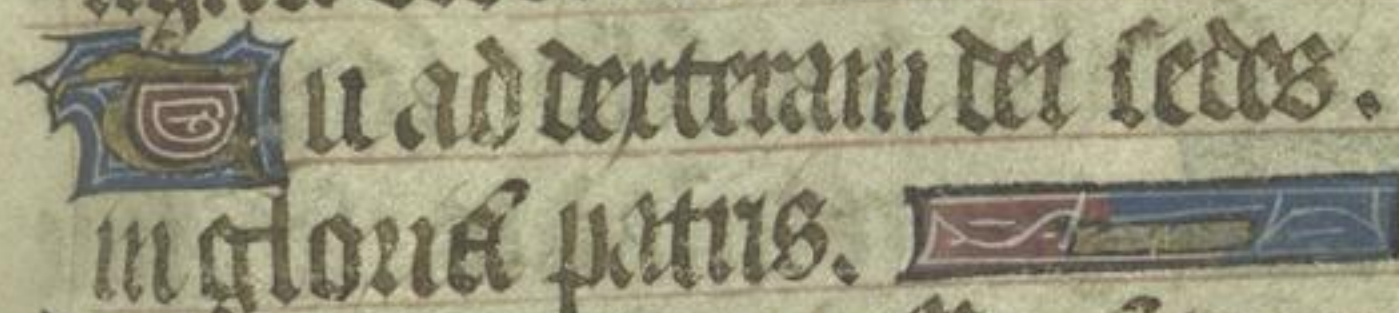 Tu ad dexteram dei sedes.
in gloria patris.